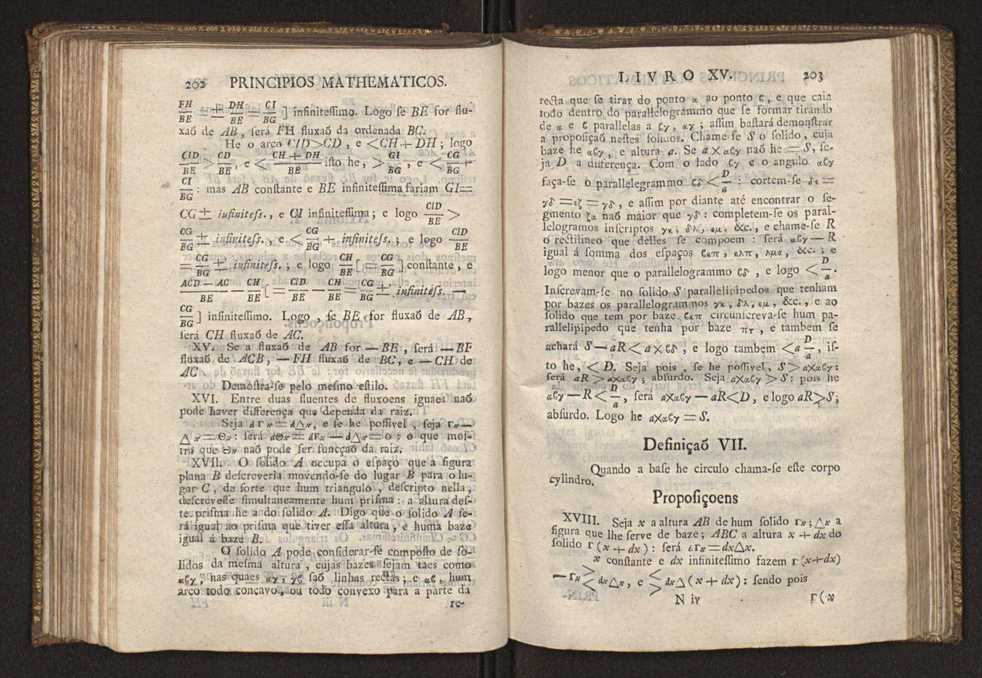 202 PRINCIPIOS MATHEMATICOS.
FH/BE [± DH/BE = CI/BG] infinitessimo. Logo se BE for flu-
xaõ de AB, será FH fluxaõ da ordenada BC.
He o arco CID>CD, e <CH+DH; logo
CID/BE > CD/BE, e < CH+DH/BE isto he, > GI/BG, e < CG/BG +
CI/BG : mas AB constante e BE infinitessima fariam GI=
CG ± infinites., e CI infinitessima; e logo CID/BE >
CG/BG ± infinites., e < CG/BG + infinites.; e logo CID/BE
= CG/BG ± infinites.; e logo CH/BE [= CG/BG] constante, e
ACD — AC/BE — CH/BE [= CID/BE — CH/BE = CG/BG ± infinites. —
CG/BG] infinitessimo. Logo, se BE for fluxaõ de AB,
será CH fluxaõ de AC.
XV. Se a fluxaõ de AB for — BE, será — BF
fluxaõ de ACB, — FH fluxaõ de BC, e — CH de
AC
Demostra-se pelo mesmo estilo.
XVI. Entre duas fluentes de fluxoens iguaes naõ
póde haver differença que dependa da raiz.
Seja dΓx = d△x, e se he possivel, seja Γx —
△x = Θx: será dΘx = dΓx — d△x = 0: o que mos-
tra que Θx naõ póde ser funcçaõ da raiz.
XVII. O solido A occupa o espaço que a figura
plana B descreveria movendo-se do lugar B para o lu-
gar C, de sorte que hum triangulo, descripto nella,
descrevesse simultaneamente hum prisma: a altura des-
te prisma he a do solido A. Digo que o solido A se-
rá igual ao prisma que tiver essa altura, e huma baze
igual á baze B.
O solido A póde considerar-se composto de so-
lidos da mesma altura, cujas bazes sejam taes como
αϐγ, nas quaes αγ, γϐ saõ linhas rectas; e αϐ, hum
arco todo concavo, ou todo convexo para a parte da
re-
LIVRO XV. 203
recta que se tirar do ponto α ao ponto ϐ, e que caia
todo dentro do parallelogrammo que se formar tirando
de α e ϐ parallelas a ϐγ, αγ; assim bastará demonstrar
a proposiçaõ nestes solidos. Chame-se S o solido, cuja
baze he αϐγ, e altura a. Se a✕αϐγ naõ he = S, se-
ja D a diferença. Com o lado ϐγ e o angulo αϐγ
faça-se o parallelegrammo ϐδ < D/a : cortem-se δε =
γδ = εζ = γδ, e assim por diante até encontrar o se-
gmento ζα naõ maior que γδ: completem-se os paral-
lelogramos inscriptos γκ, δλ, εμ, &c., e chame-se R
o rectilineo que delles se compoem: será αϐγ — R
igual á somma dos espaços ϐκπ, κλπ, λμε, &c.; e
logo menor que o parallelogrammo ϐδ, e logo < D/a.
Inscrevam-se no solido S parallelipipedos que tenham
por bazes os parallelogrammos γκ, δλ, εμ, &c., e ao
solido que tem por baze ϐκπ circunscreva-se hum pa-
rallelipipedo que tenha por baze πτ, e tambem se
achará S — aR < a✕ϐδ, e logo tambem < a D/a, is-
to he, < D. Seja pois, se he possivel, S > a✕αϐγ:
será aR > a✕αϐγ; absurdo. Seja a✕αϐγ > S: pois he
αϐγ — R < D/a, será a✕αϐγ — aR < D, e logo aR > S;
absurdo. Logo he a✕αϐγ = S.
Definiçaõ VII.
Quando a base he circulo chama-se este corpo
cylindro.
Proposiçoens
XVIII. Seja x a altura AB de hum solido Γx; △x a
figura que lhe serve de baze; ABC a altura x + dx do
solido Γ(x + dx): será dΓx = dx△x.
x constante e dx infinitessimo fazem Γ(x+dx)
— Γx >< dx△x, e <> dx△(x + dx): sendo pois
N iv Γ(x